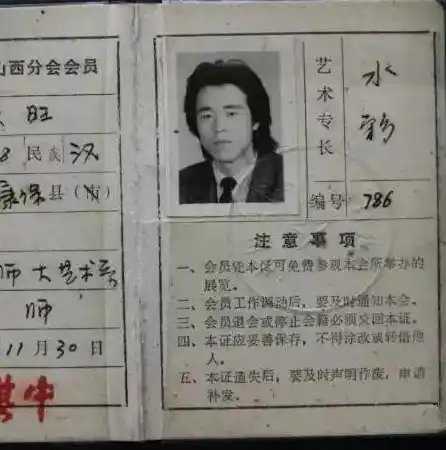 山西分会会员
旺
民族 汉
康保县(市)
师大艺术系
师
11月30日
其中
艺术专长
水彩
编号 786
注意事项
一、会员凭本证可免费参观本会所举办的
展览。
二、会员工作调动后，要及时通知本会。
三、会员退会或停止会籍必须交回本证。
四、本证应要善保存，不得涂改或转借他
人。
五、本证遗失后，要及时声明作废，申请
补发。